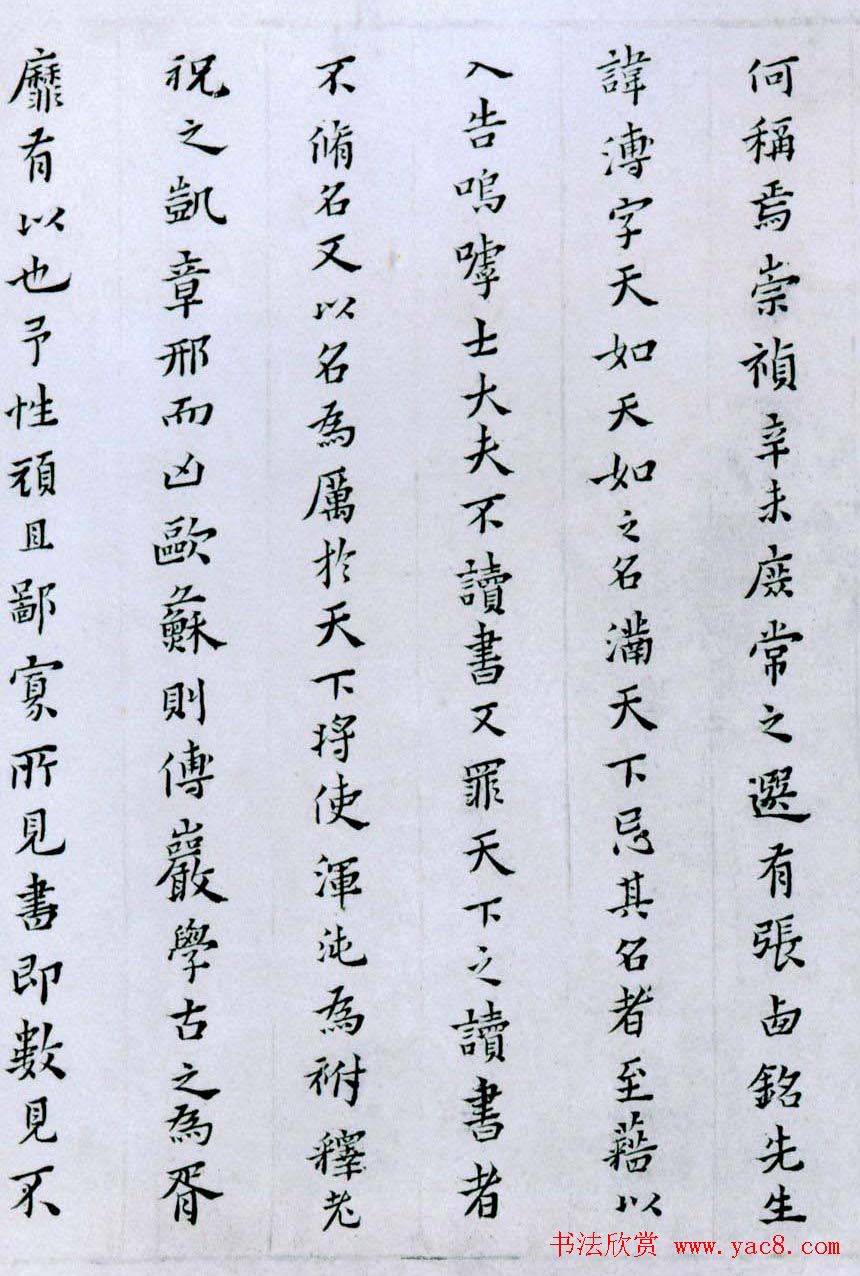 何稱焉崇禎辛未庶常之選有張西銘先生
諱溥字天如天如之名滿天下忌其名者至藉以
入告嗚嘑士大夫不讀書又罪天下之讀書者
不脩名又以名為厲於天下將使渾沌為祔釋老
祝之凱章邢而凶歐蘇則傅巖學古之為胥
靡有以也予性頑且鄙寡所見書即數見不
书法欣赏 www.yac8.com